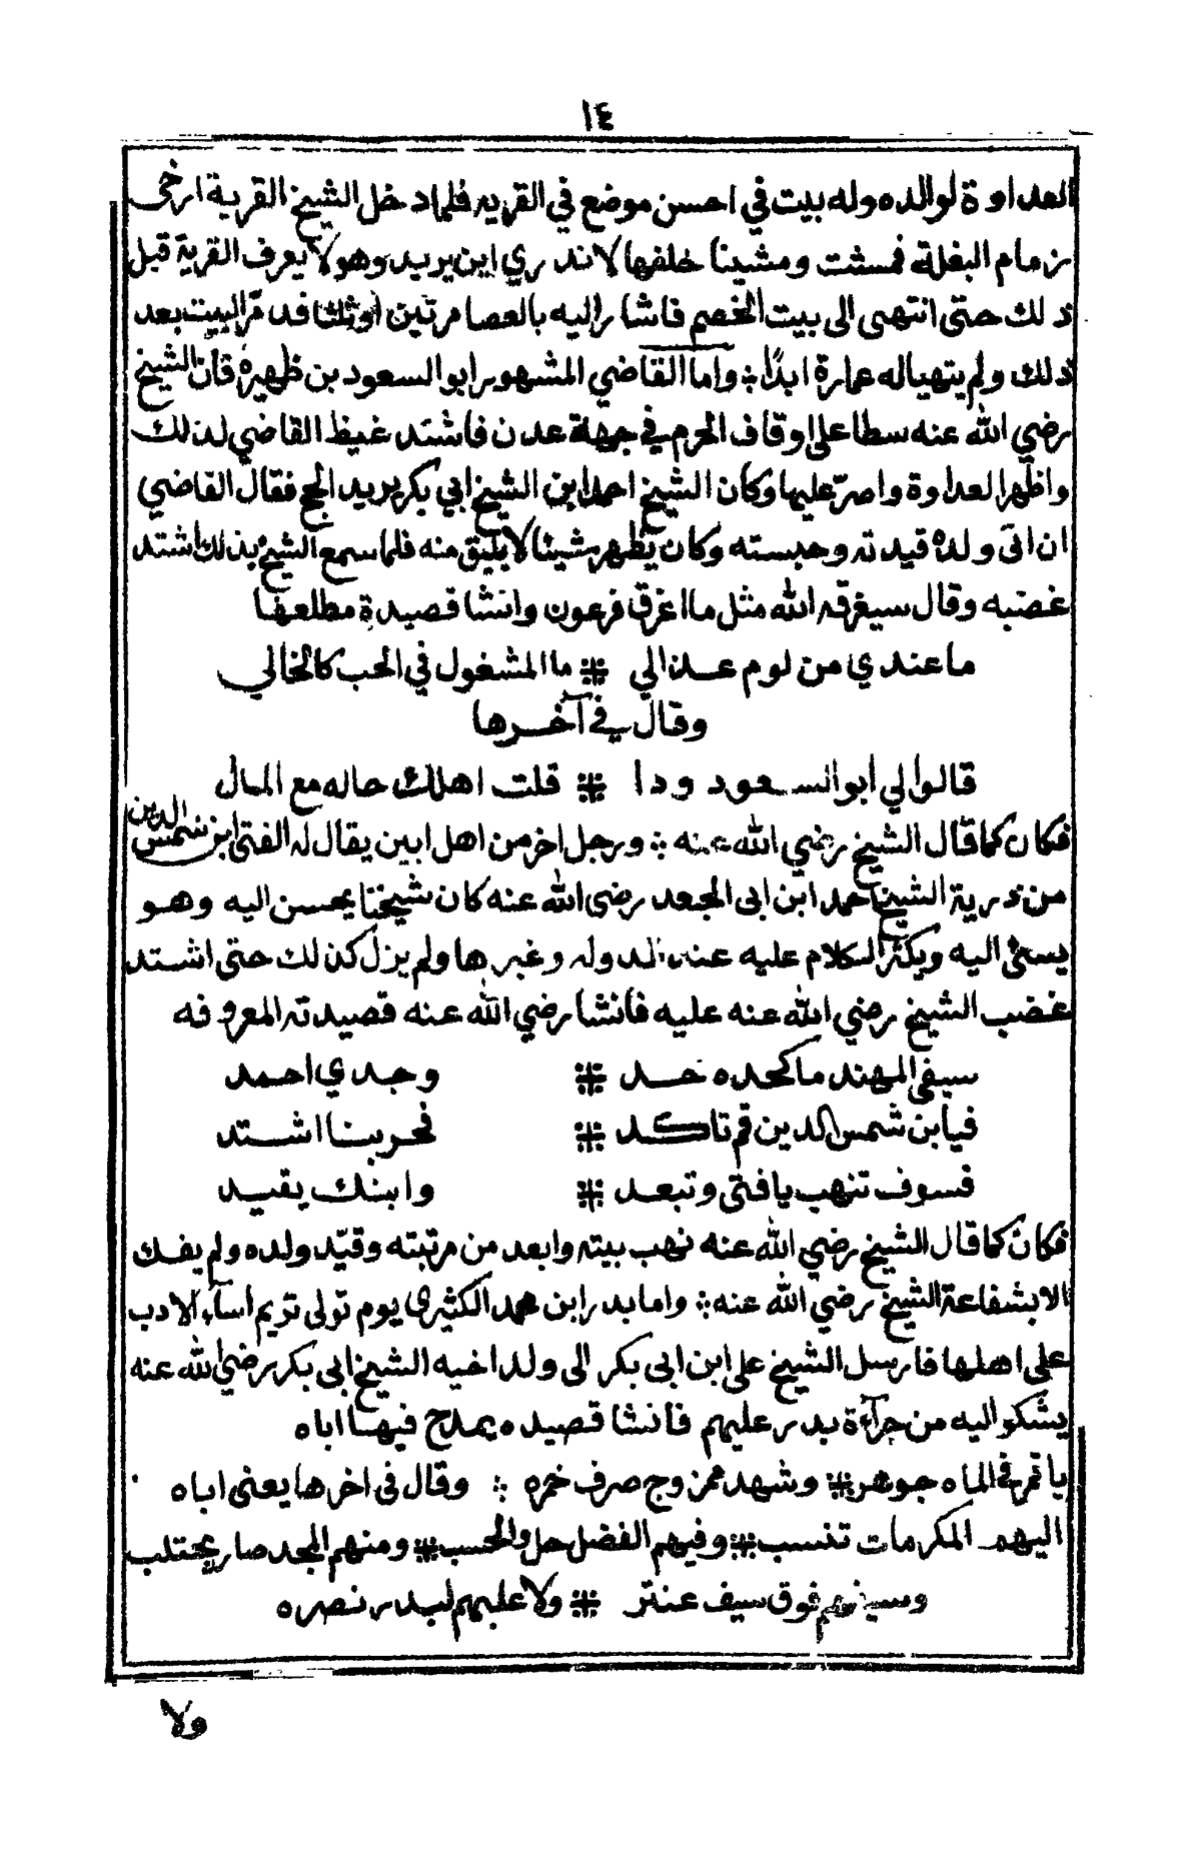 ١٤
العداوة لوالده وله بيت في احسن موضع في القريه فلما دخل الشيخ القرية ارخى
زمام البغلة فمشت ومشينا خلفها لا ندري اين يريد وهو لا يعرف القرية قبل
ذلك حتى انتهى الى بيت الخصم فاشار اليه بالعصا مرتين اوثلثا فدمّر البيت بعد
ذلك ولم يتهيا له عمارة ابدًا ؞ واما القاضي المشهور ابو السعود بن ظهيره فان الشيخ
رضي الله عنه سطا على اوقاف الحرم في جهة عدن فاشتد غيظ القاضي لذلك
واظهر العداوة واصرّ عليها وكان الشيخ احمد ابن الشيخ ابي بكر يريد الحج فقال القاضي
ان اتى ولده قيدته وحبسته وكان يظهر شيئا لا يليق منه فلما سمع الشيخ بذلك اشتد
غضبه وقال سيغرقه الله مثل ما اغرق فرعون وانشا قصيدة مطلعها
ما عندي من لوم عذالي ⁜ ما المشغول في الحب كالخالي
وقال في آخرها
قالوا لي ابو السعود ودا ⁜ قلت اهلك حاله مع المال
فكان كما قال الشيخ رضي الله عنه ؞ ورجل اخر من اهل ابين يقال له الفتى ابن شمس الدين
من ذرية الشيخ احمد ابن ابى الجعد رضى الله عنه كان شيخنا يحسن اليه وهو
يسئ اليه ويكثر الكلام عليه عند الدوله وغيرها ولم يزل كذلك حتى اشتد
غضب الشيخ رضي الله عنه عليه فانشا رضي الله عنه قصيدته المعروفه
سيفي المهند ما كحده حد ⁜ وجدي احمد
فيا بن شمس الدين قم تاكد ⁜ فحربنا اشتد
فسوف تنهب يا فتى وتبعد ⁜ وابنك يقيد
فكان كما قال الشيخ رضي الله عنه نهب بيته وابعد من مرتبته وقيّد ولده ولم يفك
الا بشفاعة الشيخ رضي الله عنه ؞ واما بدر ابن محمد الكثيرى يوم تولى تريم اسآء الادب
على اهلها فارسل الشيخ على ابن ابى بكر الى ولد اخيه الشيخ ابى بكر رضي الله عنه
يشكو اليه من جرآءة بدر عليهم فانشا قصيده يمدح فيها اباه
يا قمر في الماه جوهر ⁜ وشهد ممزوج صرف خمره ؞ وقال فى اخرها يعنى اباه
اليهم المكرمات تنسب ⁜ وفيهم الفضل حل والحسب ⁜ ومنهم المجد صار يحتلب
وسيفهم فوق سيف عنتر ⁜ ولا عليهم لبدر نصره
ولا